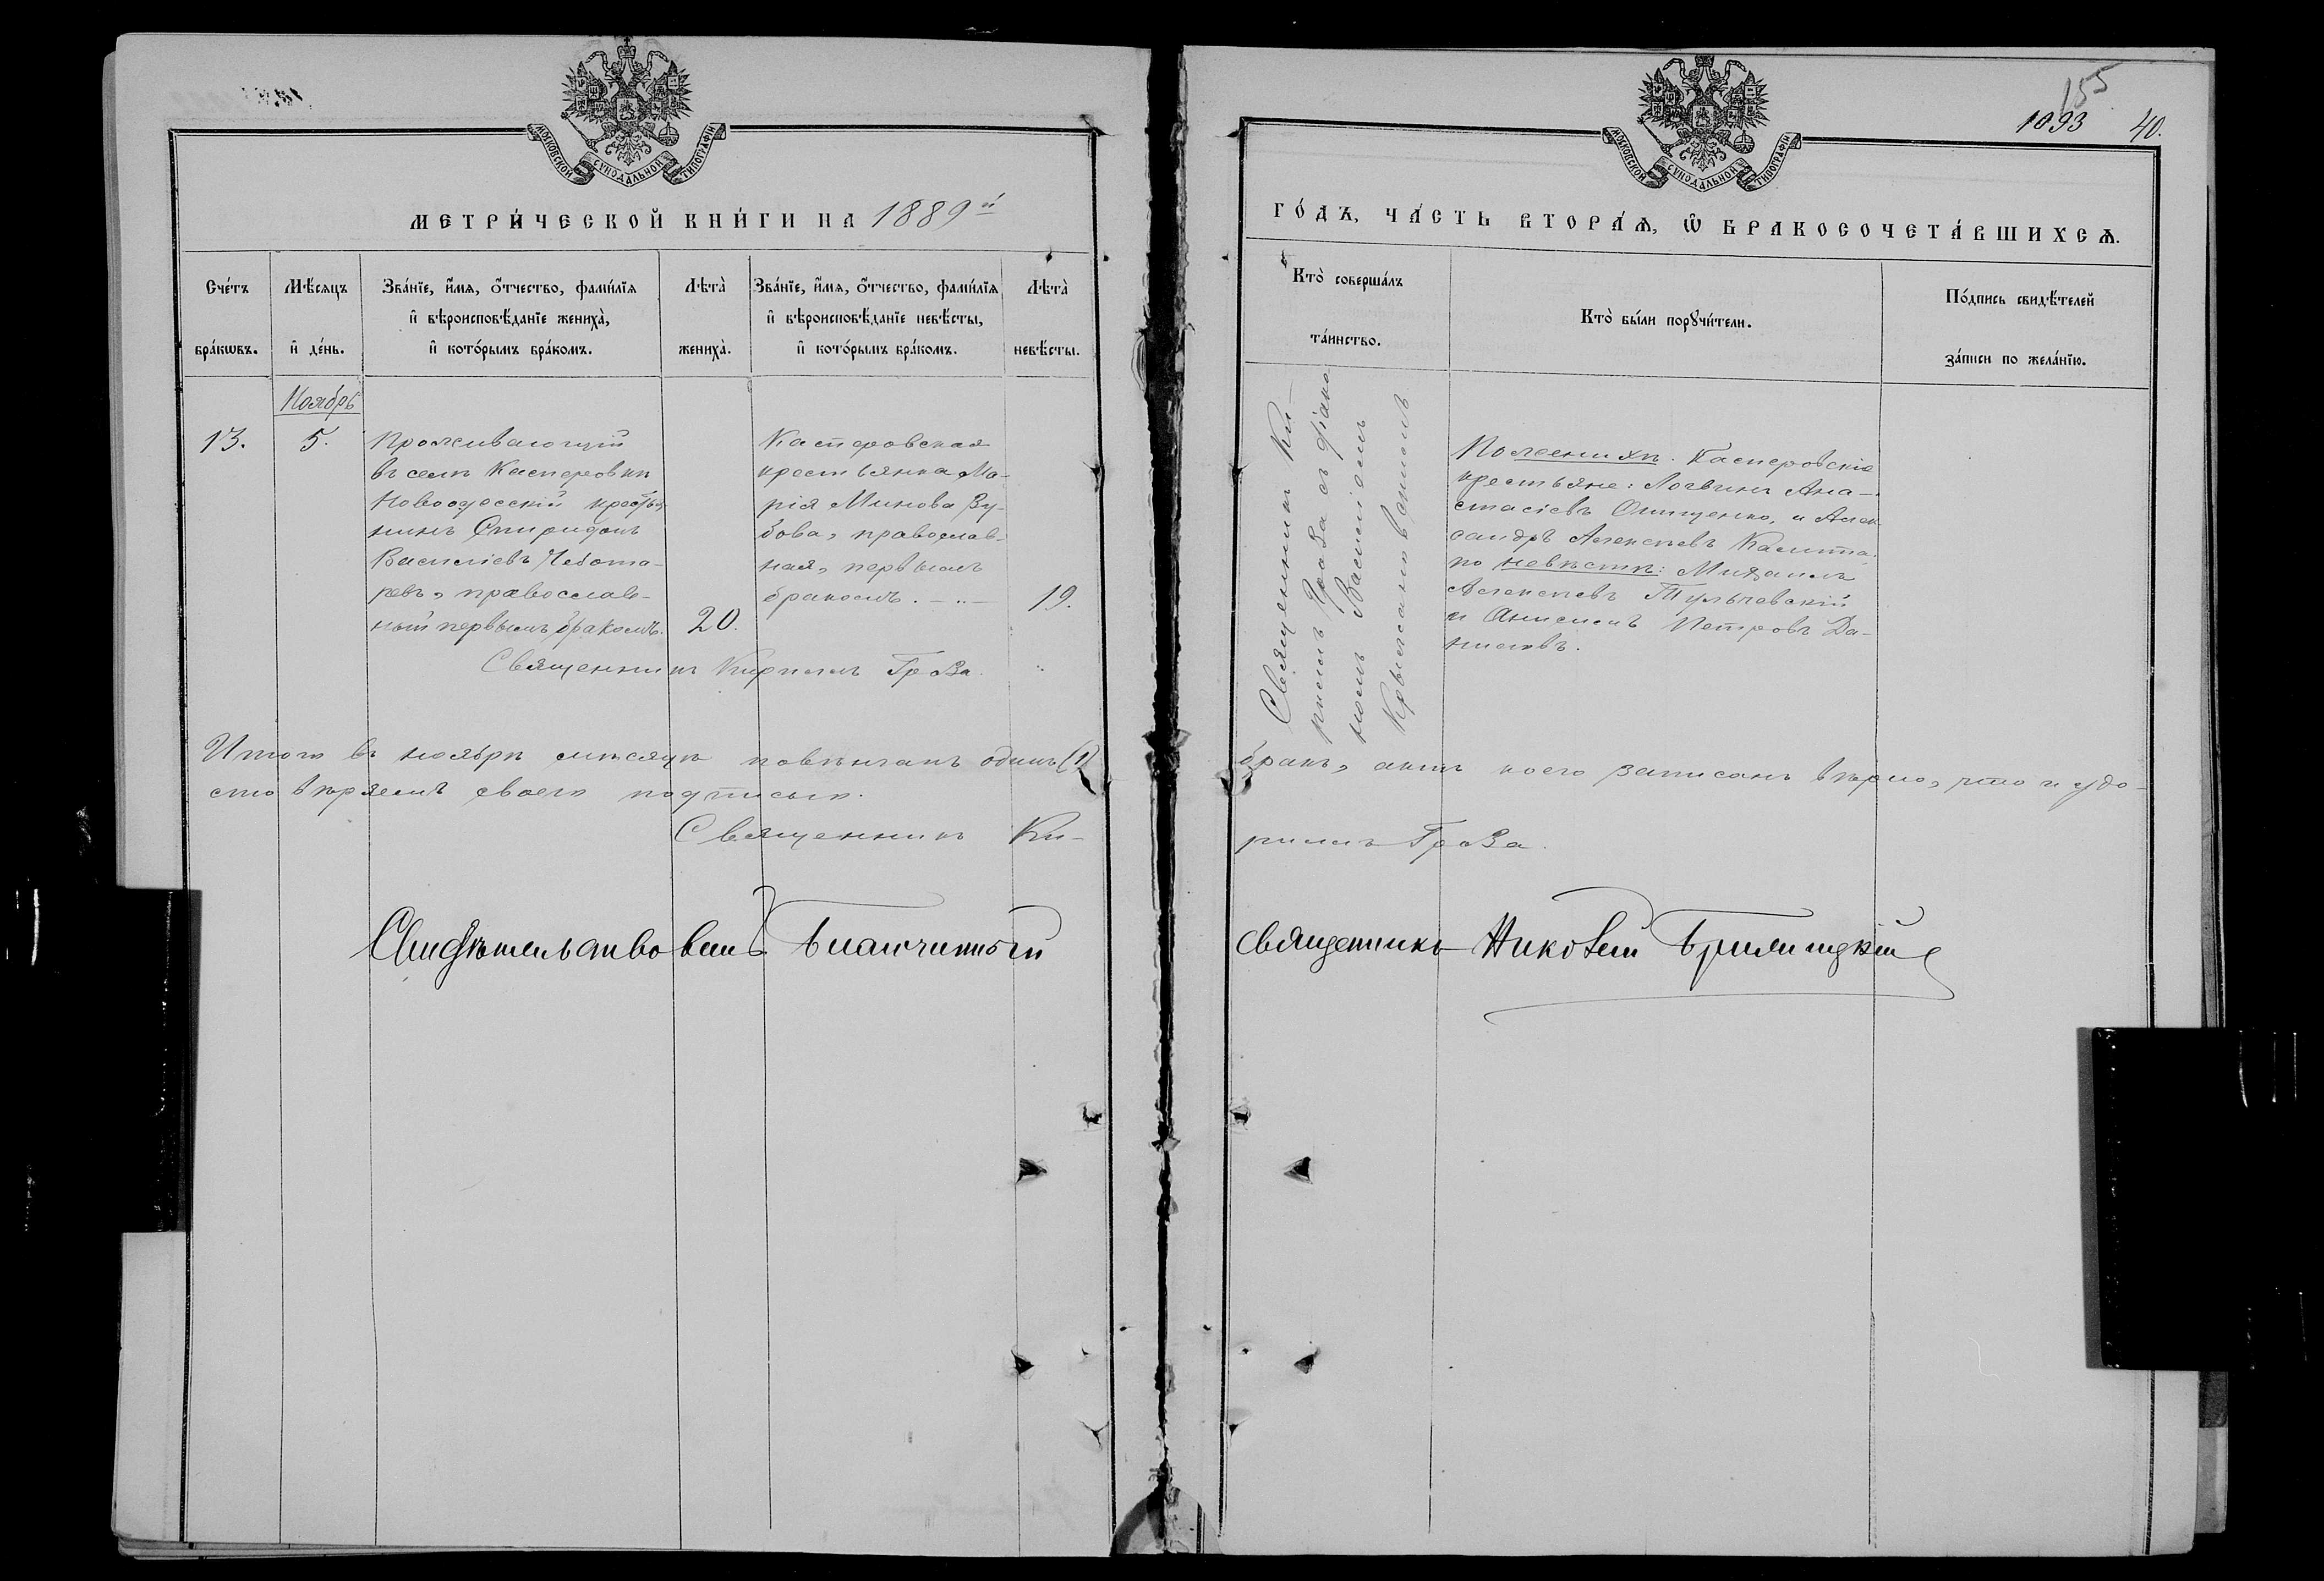 МОСКОВСКОЙ СѴНОДАЛЬНОЙ ТИПОГРАФІИ
МЕТРИ́ЧЕСКОЙ КНИ́ГИ НА 1889й
Сче́тъ бра́кѡвъ.
Мѣ́сяцъ и҆ де́нь.
Зва́нїе, и҆́мѧ, ѻ҆́тчество, фами́лїѧ
и҆ вѣроисповѣ́данїе жениха̀,
и҆ кото́рымъ бра́комъ.
Лѣта̀ жениха̀.
Зва́нїе, и҆́мѧ, ѻ҆́тчество, фами́лїѧ
и҆ вѣроисповѣ́данїе невѣ́сты,
и҆ кото́рымъ бра́комъ.
Лѣта̀ невѣ́сты.
Ноябрь
13.
5.
Проживающій
въ селѣ Касперовкѣ
Новоодесскій крестья
нинъ Спиридонъ
Василіевъ Чебота-
ревъ, православ-
ный первымъ бракомъ.
20.
Касперовская
крестьянка Ма-
рія Минова Зу-
бова, православ-
ная, первымъ
бракомъ.
19.
Священникъ Кириллъ Гроза.
Итого въ ноябрѣ мѣсяцѣ повѣнчанъ одинъ (1)
стовѣряемъ своею подписью.
Священникъ Ки-
Свидѣтельствовалъ Благочинный
155
1093 40.
МОСКОВСКОЙ СѴНОДАЛЬНОЙ ТИПОГРАФІИ
ГО́ДЪ, ЧА́СТЬ ВТОРА́Ѧ, Ѡ҆ БРАКОСОЧЕТА́ВШИХСѦ.
Кто̀ соверша́лъ
та́инство.
Кто̀ бы́ли порꙋчи́тели.
По́дпись свидѣ́телей
за́писи по жела́нїю.
Священникъ Ки-
риллъ Гроза съ діако
номъ Василіемъ
Крыжановскимъ
По женихѣ. Касперовскіе
крестьяне: Логвинъ Ана-
стасіевъ Онищенко, и Алек
сандръ Алексѣевъ Калита.
по невѣстѣ: Михаилъ
Алексѣевъ Тульчевскій
и Анисимъ Петровъ Да-
ниловъ.
бракъ, актъ коего записанъ вѣрно, что и удо-
риллъ Гроза.
священникъ Николай Брилицкій